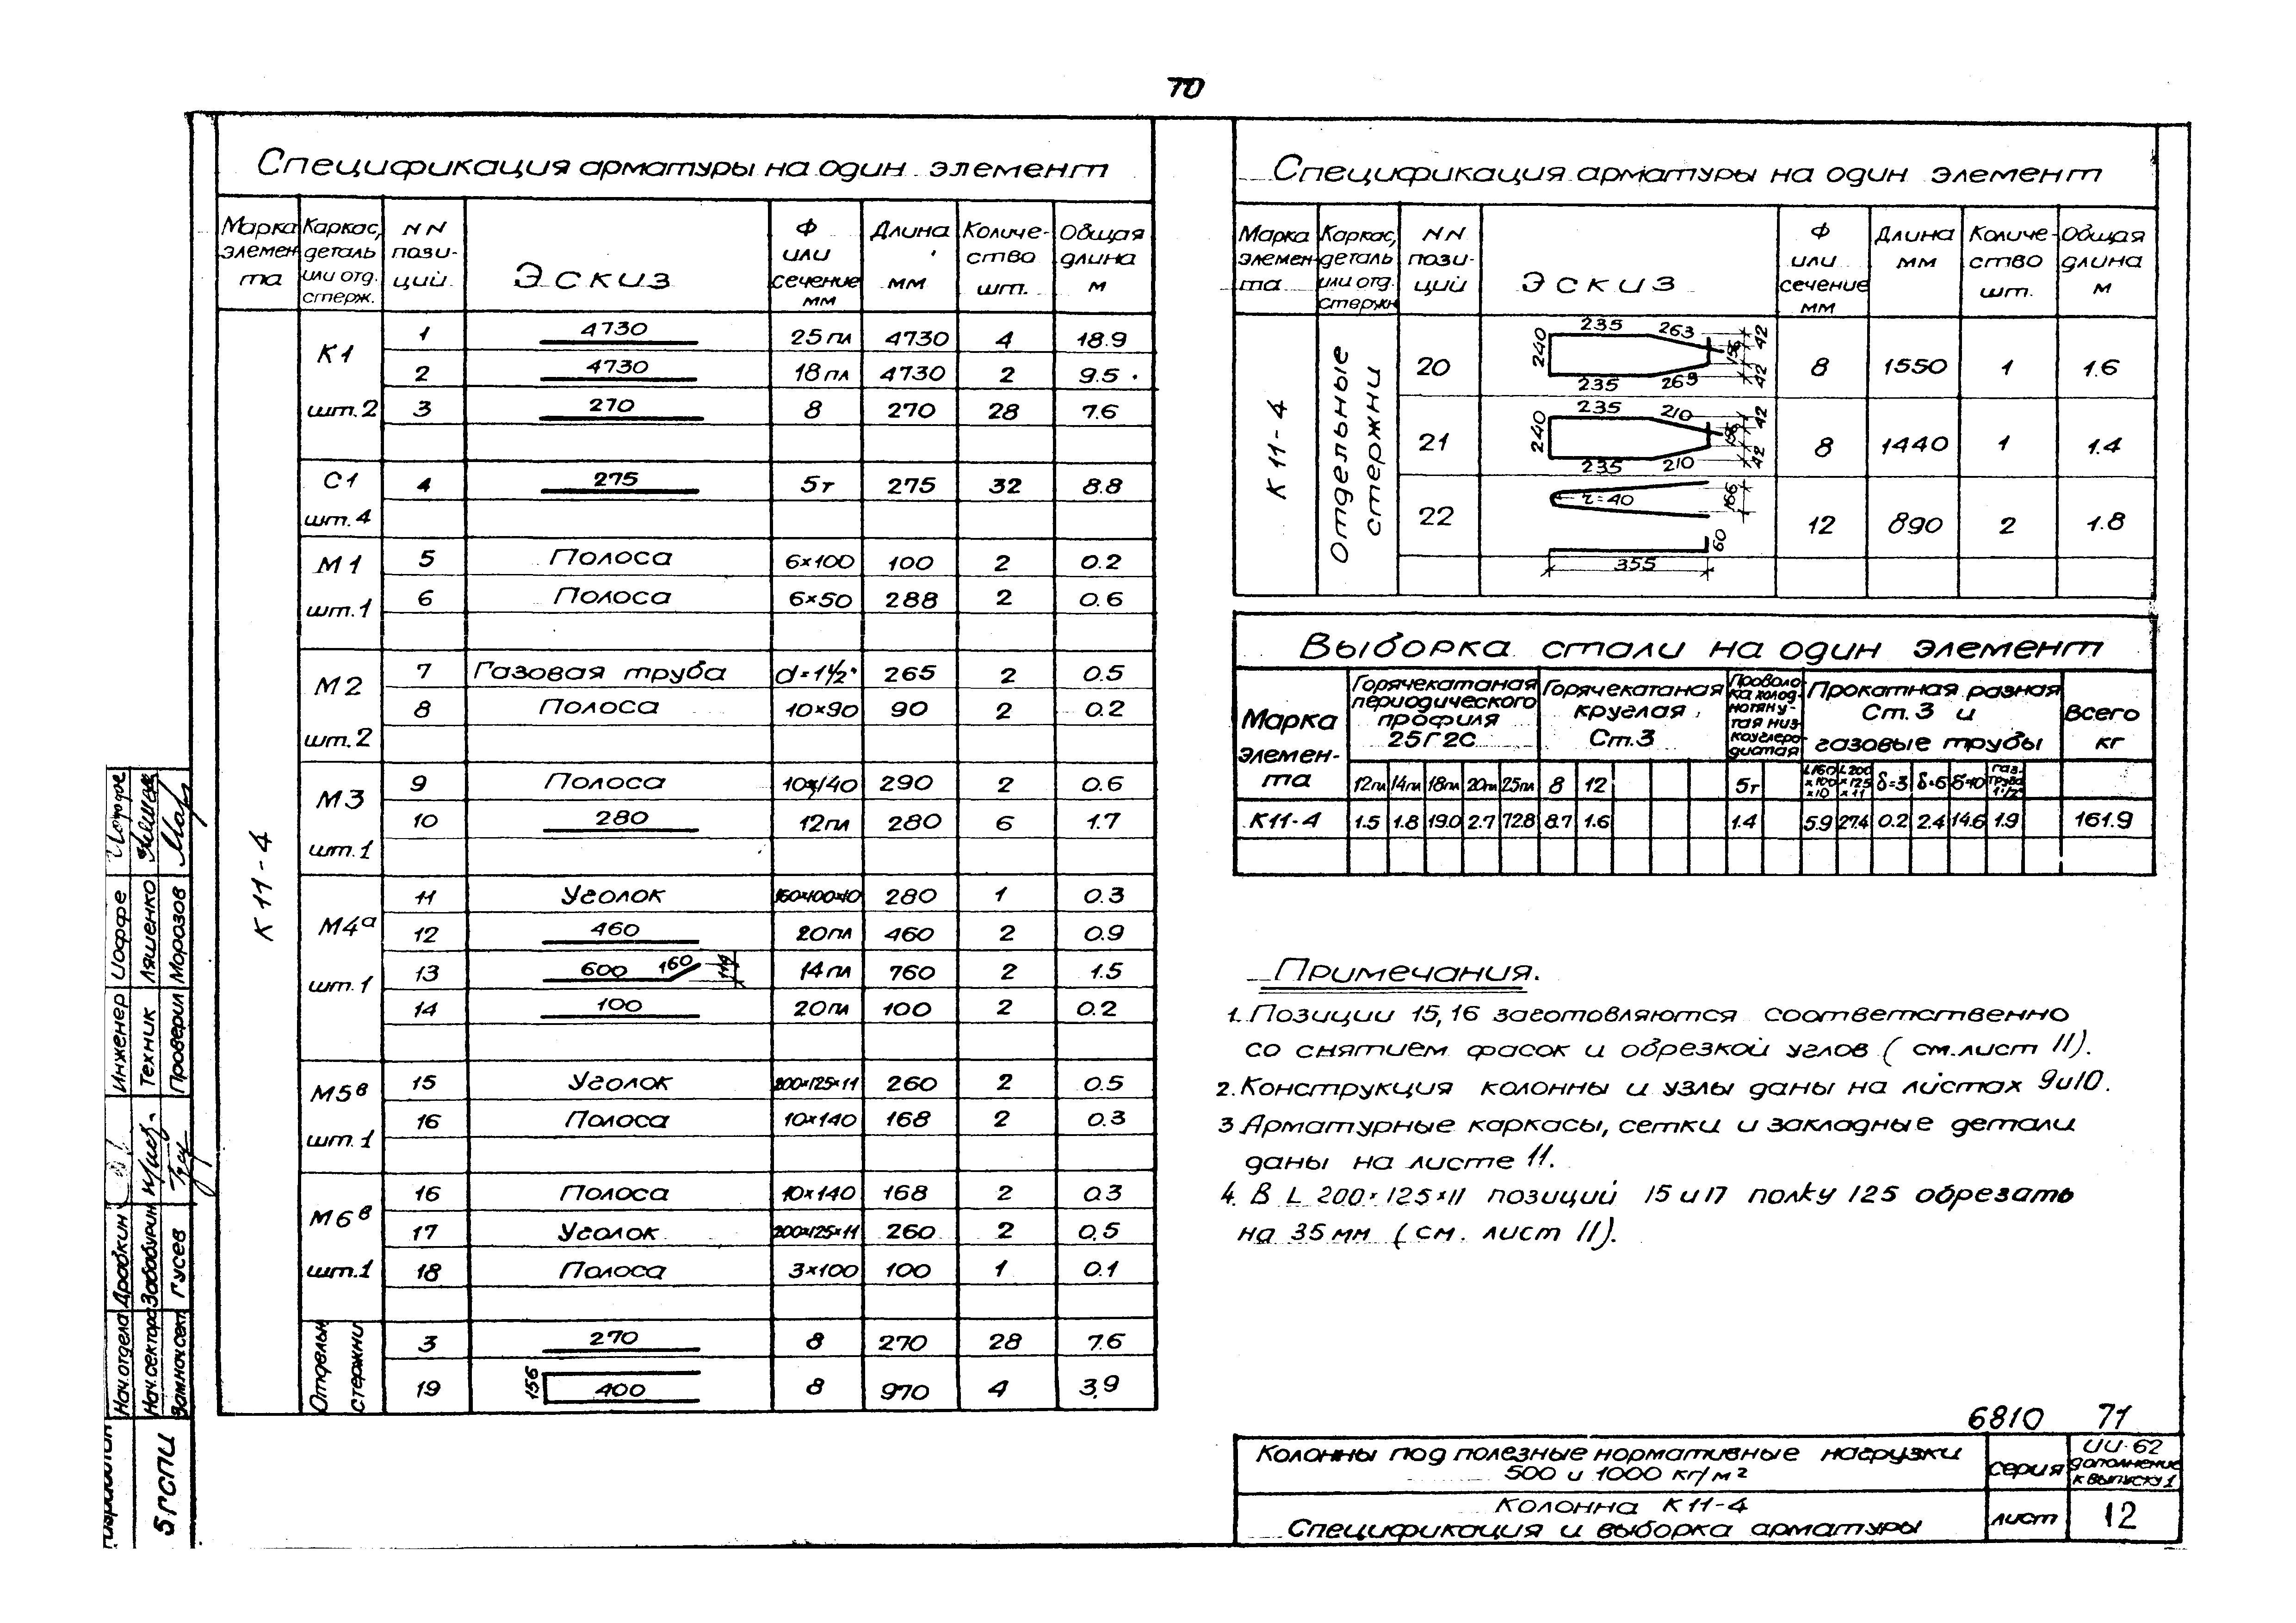 70
Спецификация арматуры на один элемент
Марка элемен та | Каркас, деталь или отд. стерж. | NN пози- ций | Эскиз | Ф или сечение мм | Длина мм | Количе- ство шт. | Общая длина м
К 11-4
К1 шт.2 | 1 | 4730 | 25пл | 4730 | 4 | 18.9
2 | 4730 | 18пл | 4730 | 2 | 9.5
3 | 270 | 8 | 270 | 28 | 7.6
С1 шт.4 | 4 | 275 | 5т | 275 | 32 | 8.8
М1 шт.1 | 5 | Полоса | 6×100 | 100 | 2 | 0.2
6 | Полоса | 6×50 | 288 | 2 | 0.6
М2 шт.2 | 7 | Газовая труба | d=1½" | 265 | 2 | 0.5
8 | Полоса | 10×90 | 90 | 2 | 0.2
М3 шт.1 | 9 | Полоса | 10×140 | 290 | 2 | 0.6
10 | 280 | 12пл | 280 | 6 | 1.7
М4а шт.1 | 11 | Уголок | 160×100×10 | 280 | 1 | 0.3
12 | 460 | 20пл | 460 | 2 | 0.9
13 | 600 160 | 14пл | 760 | 2 | 1.5
14 | 100 | 20пл | 100 | 2 | 0.2
М5в шт.1 | 15 | Уголок | 200×125×11 | 260 | 2 | 0.5
16 | Полоса | 10×140 | 168 | 2 | 0.3
М6в шт.1 | 16 | Полоса | 10×140 | 168 | 2 | 0.3
17 | Уголок | 200×125×11 | 260 | 2 | 0.5
18 | Полоса | 3×100 | 100 | 1 | 0.1
Отдельн стержни | 3 | 270 | 8 | 270 | 28 | 7.6
19 | 156 400 | 8 | 970 | 4 | 3.9
Спецификация арматуры на один элемент
Марка элемен- та | Каркас, деталь или отд. стержн | NN пози- ций | Эскиз | Ф или сечение мм | Длина мм | Количе- ство шт. | Общая длина м
К 11-4 | Отдельные стержни
20 | 240 235 263 235 263 42 156 42 | 8 | 1550 | 1 | 1.6
21 | 240 235 210 235 210 42 156 42 | 8 | 1440 | 1 | 1.4
22 | r=40 166 60 355 | 12 | 890 | 2 | 1.8
Выборка стали на один элемент
Марка элемен- та | Горячекатаная периодического профиля 25Г2С | Горячекатаная круглая Ст.3 | Проволо- ка холод- нотяну- тая низ- коуглеро- дистая | Прокатная разная Ст.3 и газовые трубы | Всего кг
12пл | 14пл | 18пл | 20пл | 25пл | 8 | 12 | 5т | L160 ×100 ×10 | L200 ×125 ×11 | δ=3 | δ=6 | δ=10 | газ. труба 1½"
К11-4 | 1.5 | 1.8 | 19.0 | 2.7 | 72.8 | 8.7 | 1.6 | 1.4 | 5.9 | 27.4 | 0.2 | 2.4 | 14.6 | 1.9 | 161.9
Примечания.
1. Позиции 15,16 заготовляются соответственно
со снятием фасок и обрезкой углов (см.лист 11).
2. Конструкция колонны и узлы даны на листах 9и10.
3 Арматурные каркасы, сетки и закладные детали
даны на листе 11.
4. В L 200×125×11 позиций 15 и 17 полку 125 обрезать
на 35 мм (см. лист 11).
6810 71
Колонны под полезные нормативные нагрузки
500 и 1000 кг/м²
серия
ИИ-62
дополнение
к выпуску 1
Колонна К11-4
Спецификация и выборка арматуры
лист
12
Инженер Иоффе
Техник Ляшенко
Проверил Морозов
Нач.отдела Драбкин
Нач.сектора Забабурин
Зам.нач.сект. Гусев
5ГСПИ